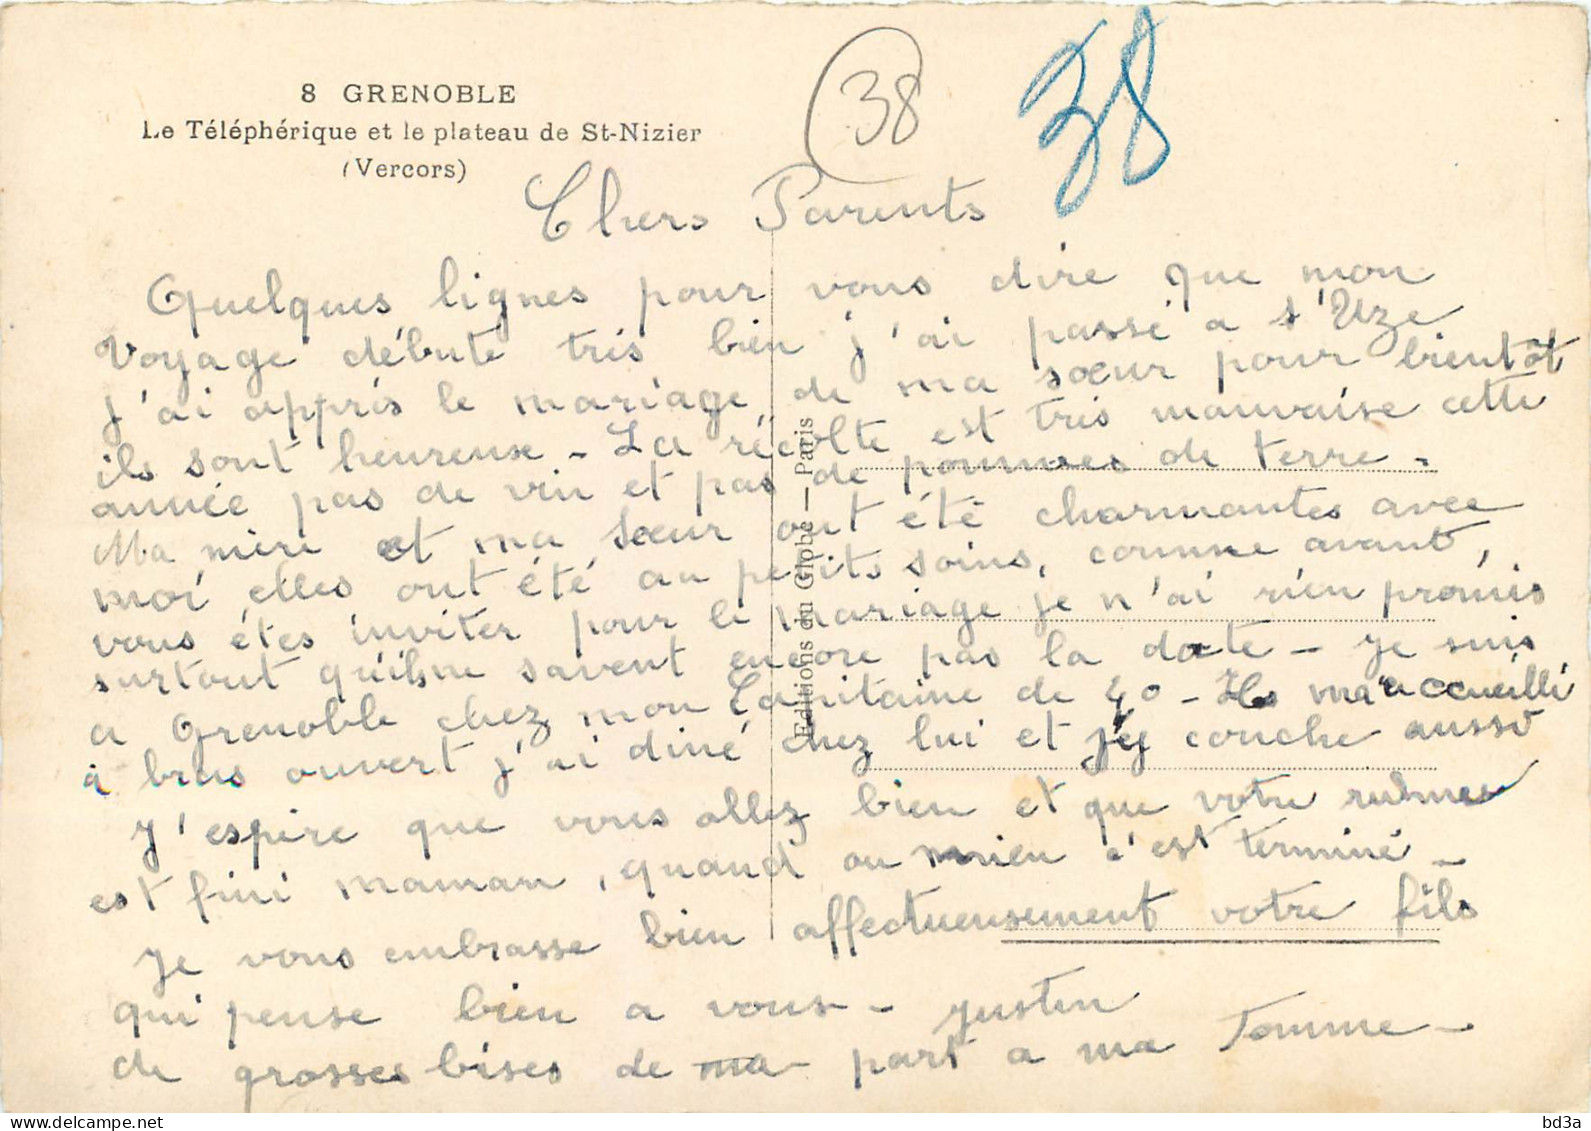 8 GRENOBLE
Le Téléphérique et le plateau de St-Nizier
(Vercors)
38
38
Chers Parents
Quelques lignes pour vous dire que mon
Voyage débute très bien j'ai passé a s'Uze
j'ai appris le mariage de ma sœur pour bientôt
ils sont heureuse - La récolte est très mauvaise cette
année pas de vin et pas de pommes de terre -
Ma mère et ma sœur ont été charmantes avec
moi, elles ont été au petits soins, comme avant,
vous étes inviter pour le mariage je n'ai rien promis
surtout qu'ils ne savent encore pas la date - je suis
a Grenoble chez mon Capitaine de 40 - Ils m'a accueilli
à bras ouvert j'ai diné chez lui et j'y couche aussi
J'espère que vous allez bien et que votre rubmes
est fini maman, quand au mien c'est terminé -
Je vous embrasse bien affectueusement votre fils
qui pense bien a vous - Justin
de grosses bises de ma part a ma Tomme -
Editions du Globe — Paris
https://www.delcampe.net
bd3a